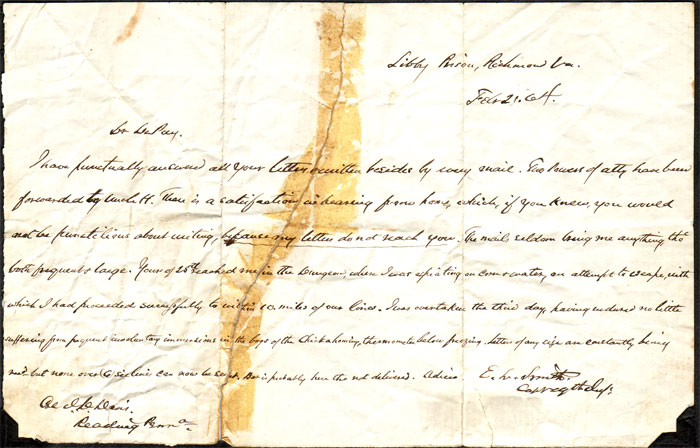 Libby Prison, Richmond Va.
Feb 21. 64.
Dr
I have punctually answered all your letters & written besides by every mail. Two Powers of atty have been
forwarded by Uncle H. There is a satisfaction in hearing from home, which, if you knew, you would
not be punctilious about writing, because my letters do not reach you. The mails seldom bring me anything tho'
both frequent & large. Yours of 25th reached me in the Dungeon, when I was expiating on corn & water, an attempt to escape, with
which I had proceeded successfully to within 10 miles of our lines. I was overtaken the third day, having endured no little
suffering from frequent involuntary immersions in the bogs of the Chickahominy, thermometer below freezing. Letters of any size are constantly being
rec'd but none over 6 lines can now be sent. Box is probably here tho not delivered. Adieu. E. L. Smith.
Corpg
Reading Penna